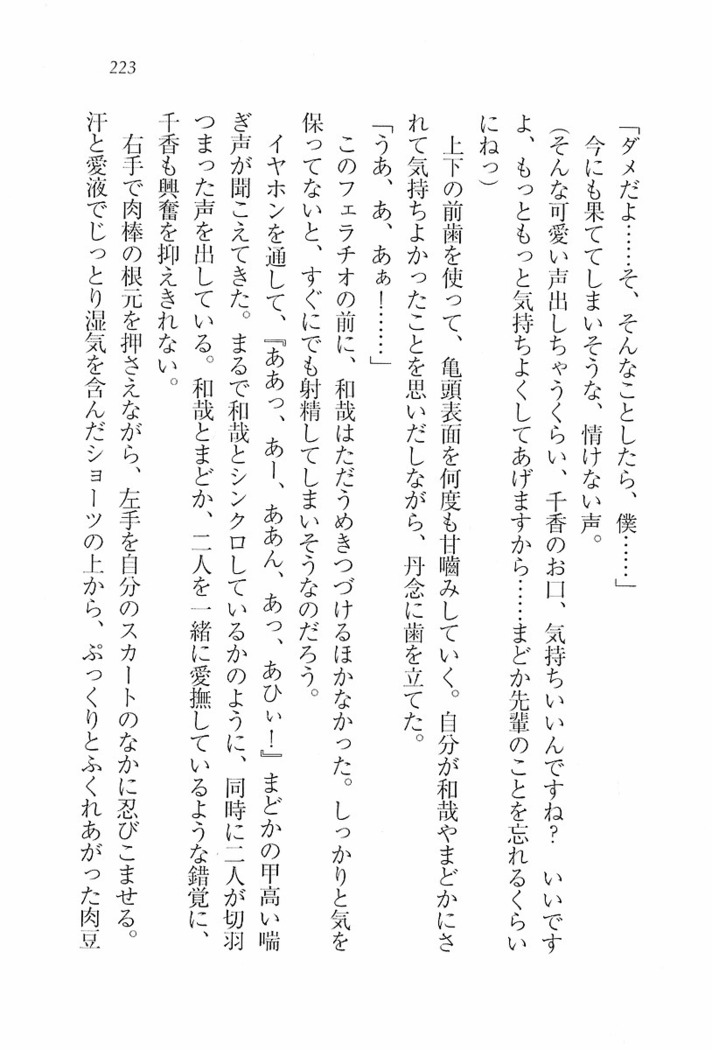 223
「ダメだよ……そ、そんなことしたら、僕……」
今にも果ててしまいそうな、情けない声。
(そんな可愛い声出しちゃうくらい、千香のお口、気持ちいいんですね? いいです
よ、もっともっと気持ちよくしてあげますから……まどか先輩のことを忘れるくらい
にねっ)
上下の前歯を使って、亀頭表面を何度も甘噛みしていく。自分が和哉やまどかにさ
れて気持ちよかったことを思いだしながら、丹念に歯を立てた。
「うあ、あ、あぁ!……」
このフェラチオの前に、和哉はただうめきつづけるほかなかった。しっかりと気を
保ってないと、すぐにでも射精してしまいそうなのだろう。
イヤホンを通して、『ああっ、あー、ああん、あっ、あひぃ!』まどかの甲高い喘
ぎ声が聞こえてきた。まるで和哉とシンクロしているかのように、同時に二人が切羽
つまった声を出している。和哉とまどか、二人を一緒に愛撫しているような錯覚に、
千香も興奮を抑えきれない。
右手で肉棒の根元を押さえながら、左手を自分のスカートのなかに忍びこませる。
汗と愛液でじっとり湿気を含んだショーツの上から、ぷっくりとふくれあがった肉豆